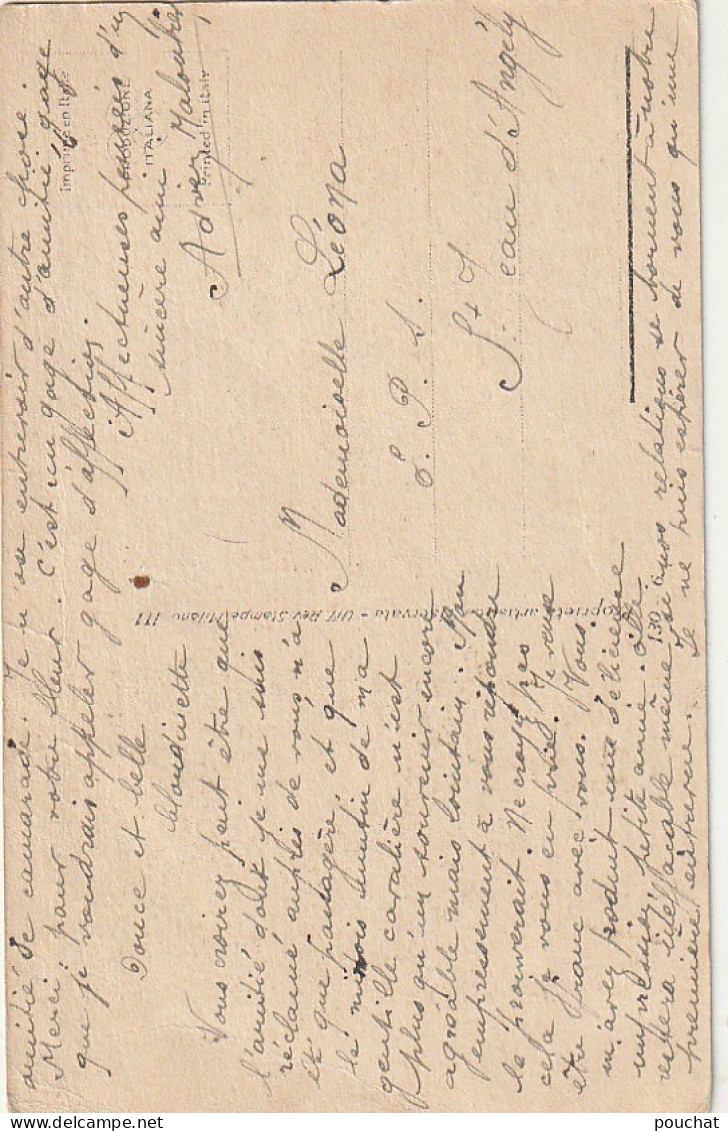 Douce et belle
blondinette
Vous croirez peut être que
l'amitié dont je me suis
réclamé auprès de vous n'a
été que passagère et que
le minois lointain de ma
gentille cavalière n'est
plus qu'un souvenir encore
agréable mais lointain. Mon
empressement à vous répondre
le prouverait. Ne croyez pas
cela je vous en prie. Je veux
être franc avec vous. Vous
m'avez produit une délicieuse
impression, petite amie. Elle
restera ineffaçable même si nos relations se bornent à notre
première entrevue. Je ne puis espérer de vous qu'une
amitié de camarade. Je n'ose entrevoir d'autre choie.
Merci pour votre fleur. C'est un gage d'amitié, gage
que je voudrais appeler gage d'affection.
Affectueuses pensées d'un
sincère ami
Mademoiselle Léona
E. P. S.
St Jean d'Angély
Imprimé en Italie
PRODUZIONE
ITALIANA
Printed in Italy
Proprietà artistica riservata - Uff. Rev. Stampe Milano
130